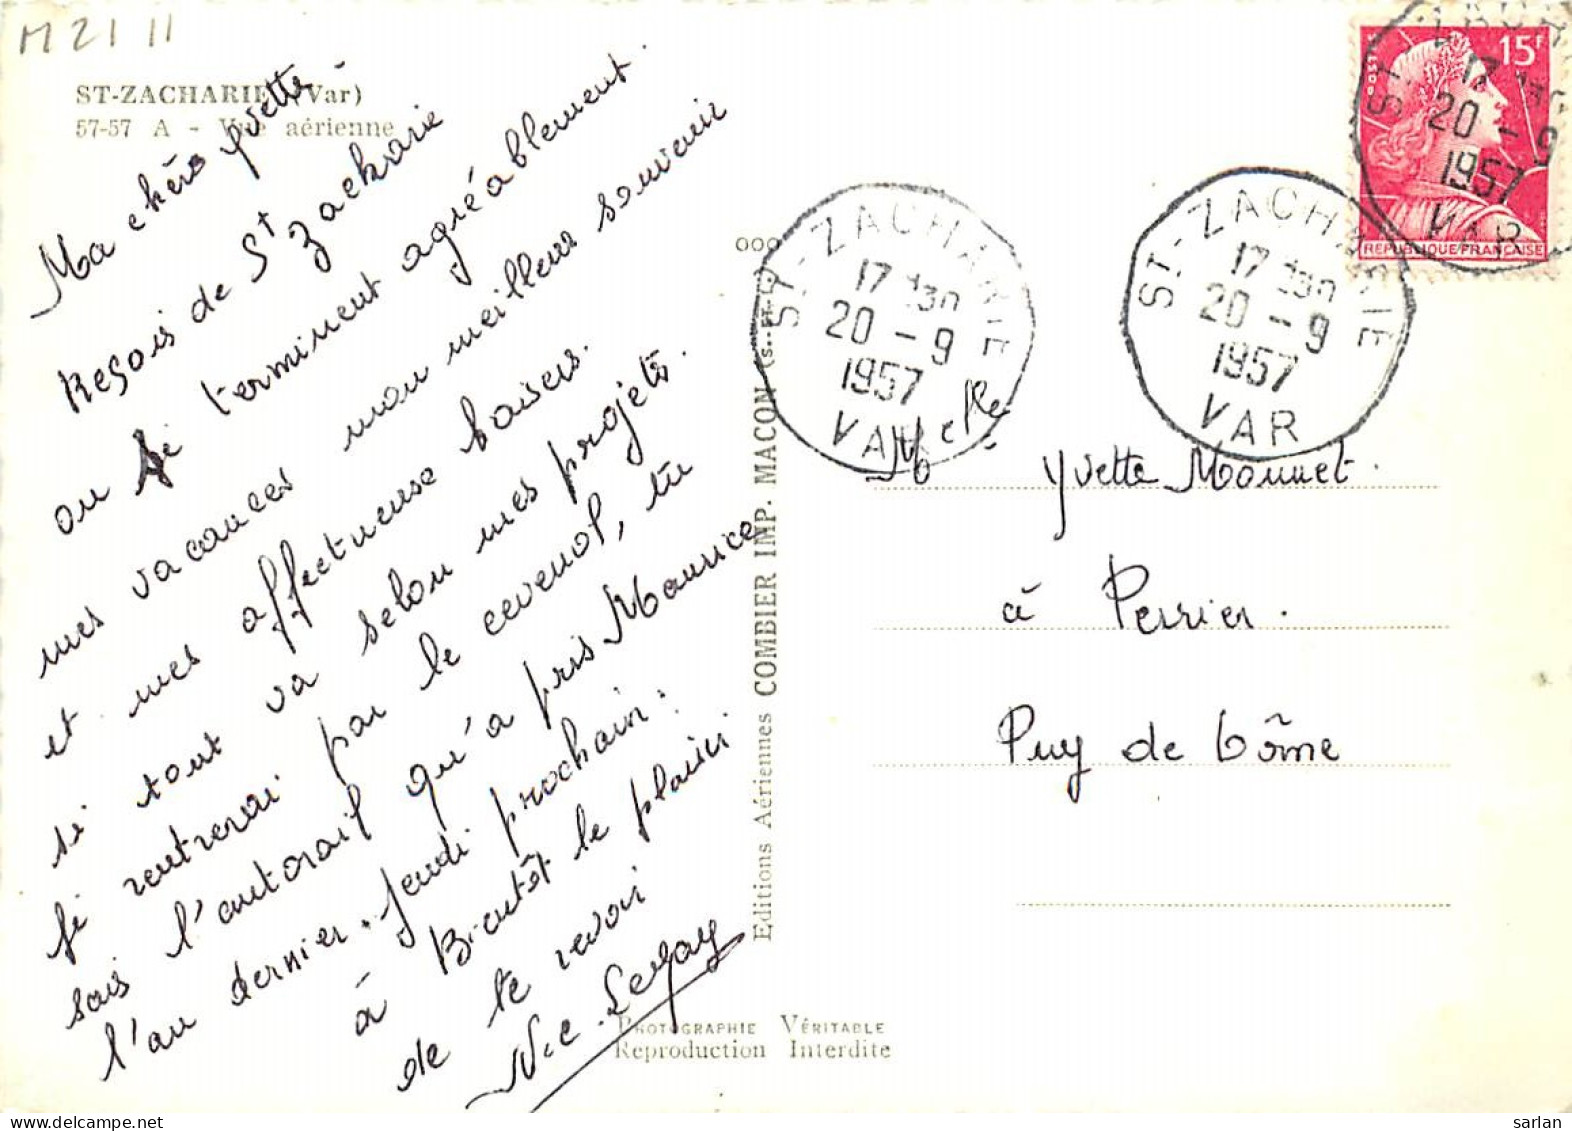 M 21 11
ST-ZACHARIE (Var)
57-57 A - Vue aérienne
Ma chère Yvette
Reçois de St Zacharie
ou je terminent agréablement.
mes vacances mon meilleur souvenir
et mes affectueuse baisers.
si tout va selon mes projets.
je rentrerai par le cevenol, tu
sais l'autorail qu'a pris Maurice
l'an dernier. Jeudi prochain.
à Bientôt le plaisir
de te revoir
Editions Aériennes COMBIER IMP. MACON
PHOTOGRAPHIE VÉRITABLE
Reproduction Interdite
ST-ZACHARIE
17 H30
20 - 9
1957
VAR
ST-ZACHARIE
17 H30
20 - 9
1957
VAR
15F
POSTES
REPUBLIQUE FRANÇAISE
17 H30
20 - 9
1957
VAR
Melle Yvette Monnet.
à Perrier.
Puy de Dôme
sarlan